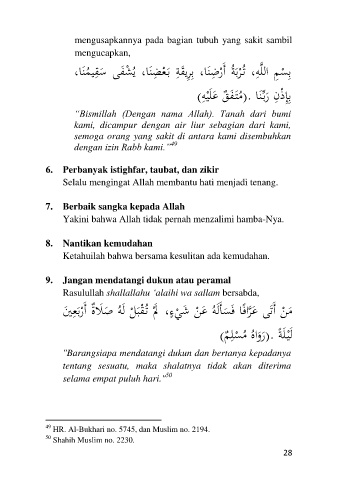 mengusapkannya pada bagian tubuh yang sakit sambil
mengucapkan,
بِسْمِ اللَّهِ، تُرْبَةُ أَرْضِنَا، بِرِيقَةِ بَعْضِنَا، يُشْفَى سَقِيمُنَا،
بِإِذْنِ رَبِّنَا .(مُتَّفَقٌ عَلَيْهِ)
"Bismillah (Dengan nama Allah). Tanah dari bumi
kami, dicampur dengan air liur sebagian dari kami,
semoga orang yang sakit di antara kami disembuhkan
dengan izin Rabb kami."49
6. Perbanyak istighfar, taubat, dan zikir
Selalu mengingat Allah membantu hati menjadi tenang.
7. Berbaik sangka kepada Allah
Yakini bahwa Allah tidak pernah menzalimi hamba-Nya.
8. Nantikan kemudahan
Ketahuilah bahwa bersama kesulitan ada kemudahan.
9. Jangan mendatangi dukun atau peramal
Rasulullah shallallahu 'alaihi wa sallam bersabda,
مَنْ أَتَى عَرَّافًا فَسَأَلَهُ عَنْ شَيْءٍ، لَمْ تُقْبَلْ لَهُ صَلَاةٌ أَرْبَعِينَ
لَيْلَةً .(رَوَاهُ مُسْلِمٌ)
"Barangsiapa mendatangi dukun dan bertanya kepadanya
tentang sesuatu, maka shalatnya tidak akan diterima
selama empat puluh hari."50
49 HR. Al-Bukhari no. 5745, dan Muslim no. 2194.
50 Shahih Muslim no. 2230.
28